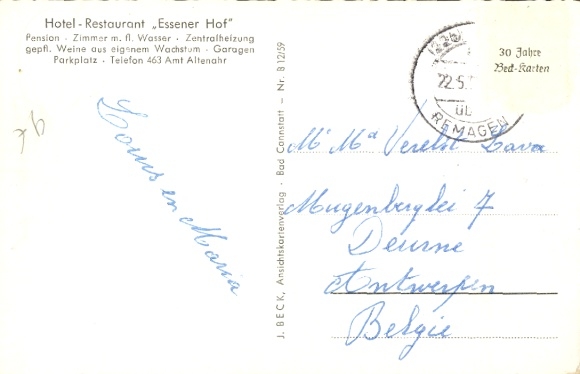 Hotel - Restaurant „Essener Hof"
Pension · Zimmer m. fl. Wasser · Zentralheizung
gepfl. Weine aus eigenem Wachstum · Garagen
Parkplatz · Telefon 463 Amt Altenahr
Louis en Maria
J. BECK, Ansichtskartenverlag · Bad Cannstatt – Nr. B 12/59
30 Jahre
Beck-Karten
22.5.
REMAGEN
Mr Ma Verelst
Mugenberglei 7
Deurne
Antwerpen
Belgie